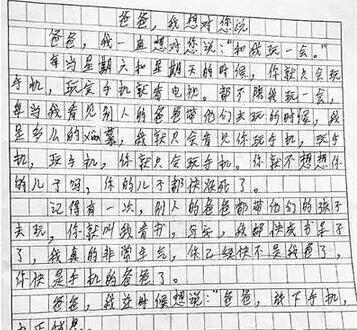 爸爸,我想对您说
爸爸,我一直想对您说:“和我玩一会。”
每当星期六和星期天的时候,你就只会玩
手机,玩完手机就看电视。都不陪我玩一会,
每当我看见别人的爸爸带他们去玩的时候,我
是多么的xiàn慕,我就只会看见你玩手机,玩手
机,玩手机,你就只会玩手机。你就不想想你
的儿子吗,你的儿子都快没死了。
记得有一次,别人的爸爸都带他们的孩子
去玩,你就叫我看书,写字,我都快成书呆子
了,我真的非常生气,你已经快不是我爸了,
你快是手机的爸爸了。
爸爸,我这时候想说:“爸爸,放下手机,